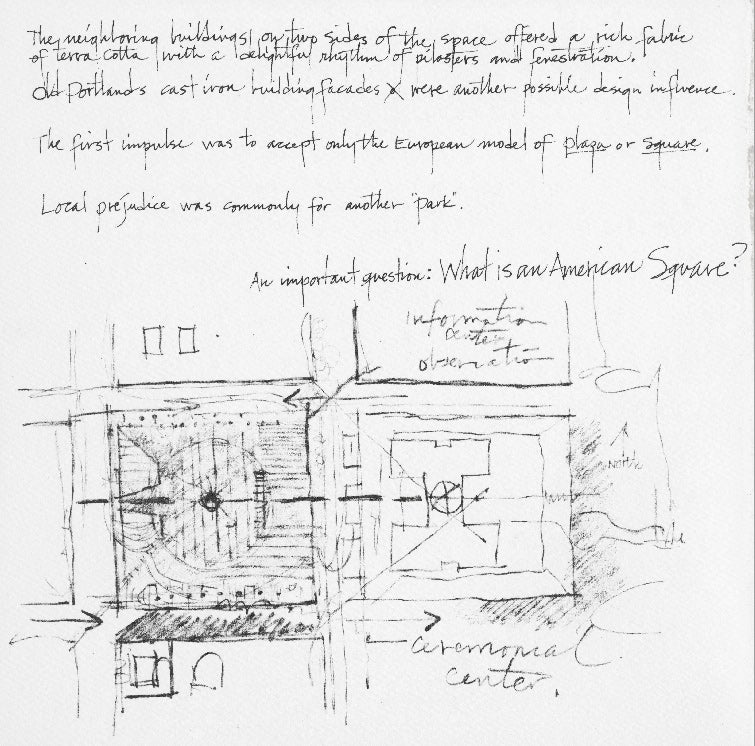 The neighboring buildings on two sides of the space offered a rich fabric
of terra cotta with a delightful rhythm of pilasters and fenestration.
Old Portlands cast iron building facades were another possible design influence.
The first impulse was to accept only the European model of plaza or square.
Local prejudice was commonly for another "park".
An important question: What is an American Square?
Information
center
observation
north
ceremonial
center.